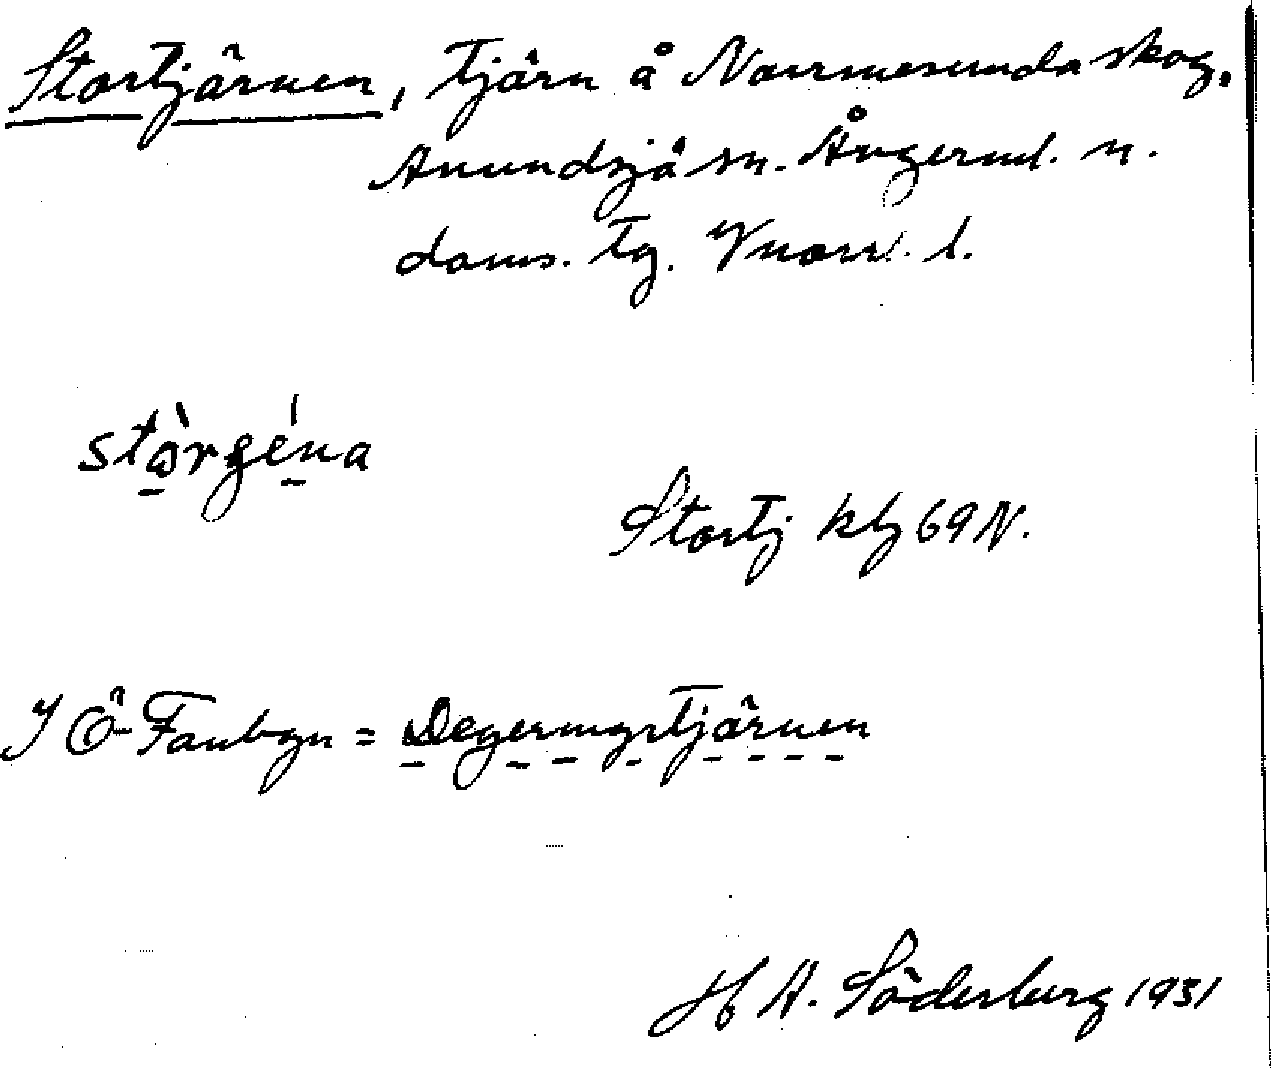 Stortjärnen, tjärn å Norrmesunda skog,
Anundsjö sn. Ångerml. n.
doms. tg. Vnorrl. l.
stòrgéna
Stortj kbl 69 N.
I Ö-Fanbyn = Degermyrstjärnen
H A. Söderberg 1931